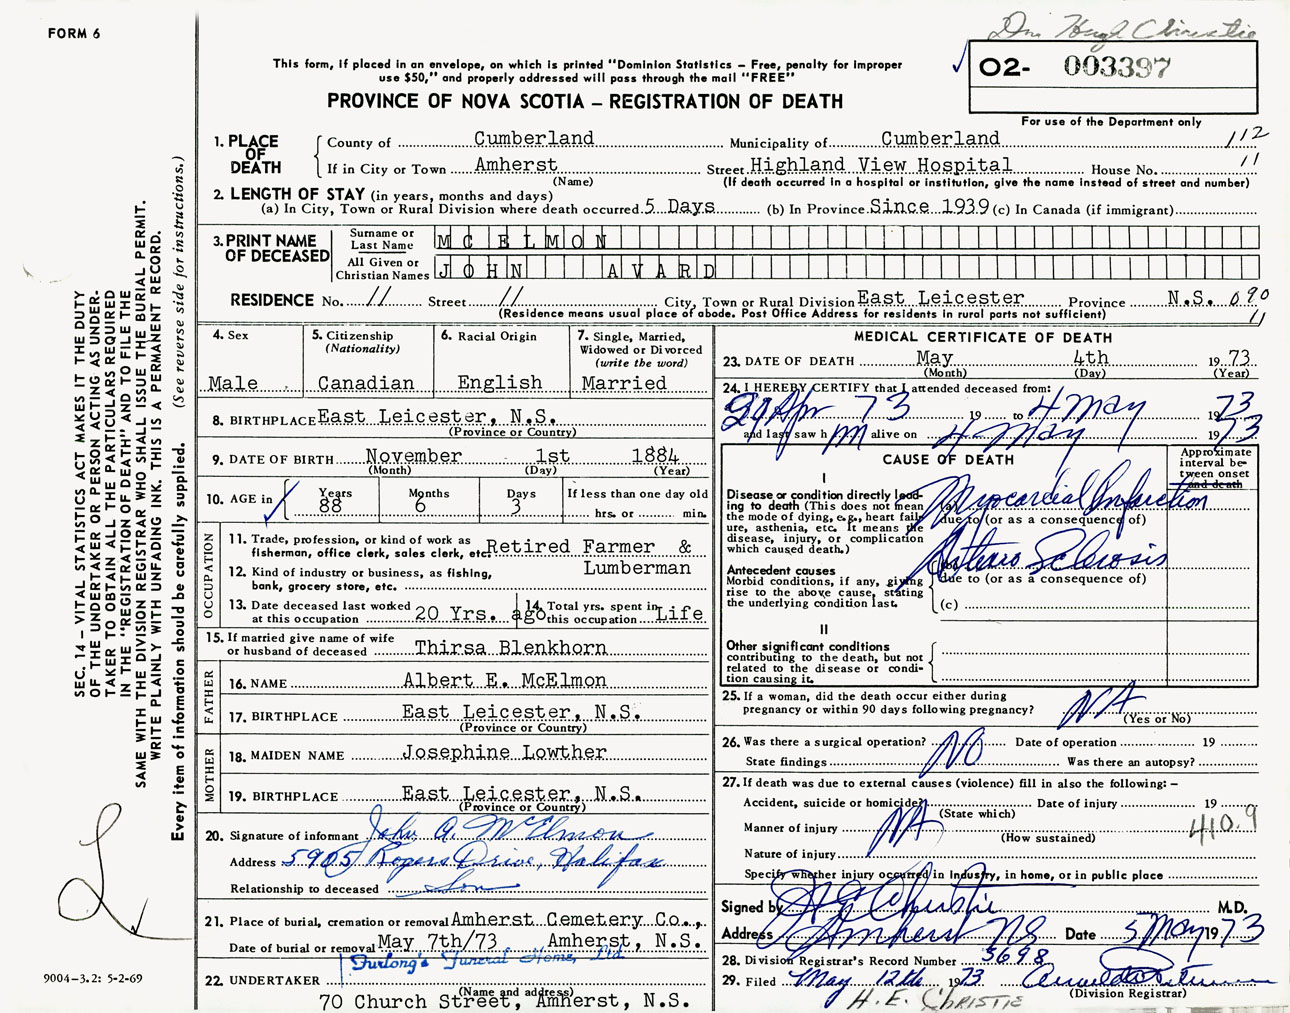 FORM 6
Dr. Hugh Christie
This form, if placed in an envelope, on which is printed "Dominion Statistics – Free, penalty for improper
use $50," and properly addressed will pass through the mail "FREE"
PROVINCE OF NOVA SCOTIA – REGISTRATION OF DEATH
02- 003397
For use of the Department only
1. PLACE OF DEATH
County of Cumberland Municipality of Cumberland 112
If in City or Town Amherst Street Highland View Hospital House No. 11
(Name) (If death occurred in a hospital or institution, give the name instead of street and number)
2. LENGTH OF STAY (in years, months and days)
(a) In City, Town or Rural Division where death occurred 5 Days (b) In Province Since 1939 (c) In Canada (if immigrant)
3. PRINT NAME OF DECEASED
Surname or Last Name MC ELMON
All Given or Christian Names JOHN AVARD
RESIDENCE No. // Street // City, Town or Rural Division East Leicester Province N.S. 090
(Residence means usual place of abode. Post Office Address for residents in rural parts not sufficient) 11
4. Sex
Male
5. Citizenship
(Nationality)
Canadian
6. Racial Origin
English
7. Single, Married,
Widowed or Divorced
(write the word)
Married
8. BIRTHPLACE East Leicester, N.S.
(Province or Country)
9. DATE OF BIRTH November 1st 1884
(Month) (Day) (Year)
10. AGE in Years Months Days If less than one day old
88 6 3 hrs. or min.
OCCUPATION
11. Trade, profession, or kind of work as
fisherman, office clerk, sales clerk, etc. Retired Farmer &
Lumberman
12. Kind of industry or business, as fishing,
bank, grocery store, etc.
13. Date deceased last worked
at this occupation 20 Yrs. ago
14. Total yrs. spent in
this occupation Life
15. If married give name of wife
or husband of deceased Thirsa Blenkhorn
FATHER
16. NAME Albert E. McElmon
17. BIRTHPLACE East Leicester, N.S.
(Province or Country)
MOTHER
18. MAIDEN NAME Josephine Lowther
19. BIRTHPLACE East Leicester, N.S.
(Province or Country)
20. Signature of informant John A. McElmon
Address 5905 Rogers Drive, Halifax
Relationship to deceased Son
21. Place of burial, cremation or removal Amherst Cemetery Co.,
Date of burial or removal May 7th/73 Amherst, N.S.
Furlong's Funeral Home, Ltd.
22. UNDERTAKER
(Name and address)
70 Church Street, Amherst, N.S.
MEDICAL CERTIFICATE OF DEATH
23. DATE OF DEATH May 4th 1973
(Month) (Day) (Year)
24. I HEREBY CERTIFY that I attended deceased from:
29 Apr 73 19 to 4 May 1973
and last saw h m alive on 4 May 1973
CAUSE OF DEATH
Approximate
interval be-
tween onset
and death
I
Disease or condition directly lead-
ing to death (This does not mean
the mode of dying, e.g., heart fail-
ure, asthenia, etc. It means the
disease, injury, or complication
which caused death.)
(a) Myocardial Infarction
due to (or as a consequence of)
Antecedent causes
Morbid conditions, if any, giving
rise to the above cause, stating
the underlying condition last.
(b) Arterio Sclerosis
due to (or as a consequence of)
(c)
II
Other significant conditions
contributing to the death, but not
related to the disease or condi-
tion causing it.
25. If a woman, did the death occur either during
pregnancy or within 90 days following pregnancy? NA
(Yes or No)
26. Was there a surgical operation? NO Date of operation 19
State findings Was there an autopsy?
27. If death was due to external causes (violence) fill in also the following: –
Accident, suicide or homicide? Date of injury 19
(State which)
Manner of injury NA 410.9
(How sustained)
Nature of injury
Specify whether injury occurred in Industry, in home, or in public place
Signed by Christie M.D.
Address Amherst NS Date 5 May 1973
28. Division Registrar's Record Number 5698
29. Filed May 12th 1973
(Division Registrar)
H. E. CHRISTIE
SEC. 14 – VITAL STATISTICS ACT MAKES IT THE DUTY
OF THE UNDERTAKER OR PERSON ACTING AS UNDER-
TAKER TO OBTAIN ALL THE PARTICULARS REQUIRED
IN THE "REGISTRATION OF DEATH" AND TO FILE THE
SAME WITH THE DIVISION REGISTRAR WHO SHALL ISSUE THE BURIAL PERMIT.
WRITE PLAINLY WITH UNFADING INK. THIS IS A PERMANENT RECORD.
Every item of information should be carefully supplied. (See reverse side for instructions.)
9004–3.2: 5-2-69